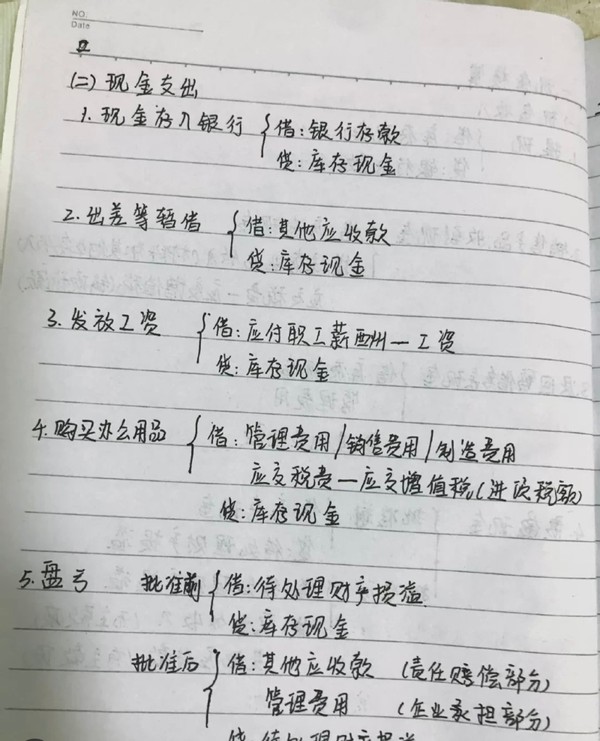 NO.
Date
(二) 现金支出
1. 现金存入银行 借: 银行存款
贷: 库存现金
2. 出差等暂借 借: 其他应收款
贷: 库存现金
3. 发放工资 借: 应付职工薪酬—工资
贷: 库存现金
4. 购买办公用品 借: 管理费用/销售费用/制造费用
应交税费—应交增值税(进项税额)
贷: 库存现金
5. 盘亏 批准前 借: 待处理财产损溢
贷: 库存现金
批准后 借: 其他应收款 (责任赔偿部分)
管理费用 (企业承担部分)
贷: 待处理财产损溢